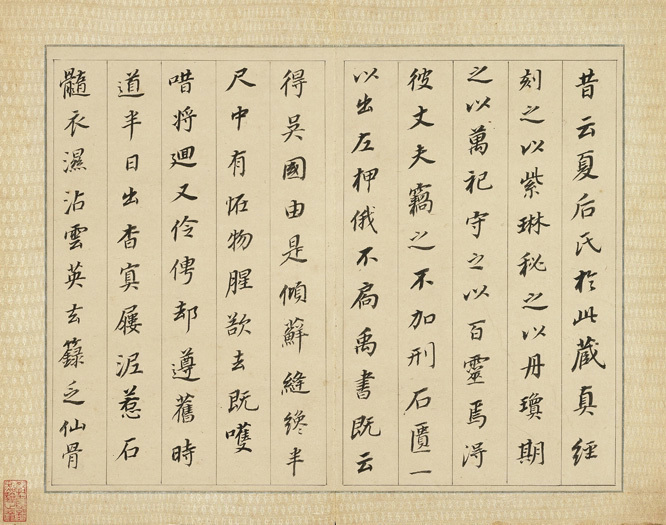 昔云夏后氏扵此藏真經
刻之以紫琳秘之以丹瓊期
之以萬祀守之以百靈焉淂
彼丈夫竊之不加刑石匱一
以出左神俄不扃禹書既云
得吳國由是傾蘚縫纔半
尺中有恠物腥欲去既嚄
唶將廻又伶俜却遵舊時
道半日出杳㝠屨泥惹石
髓衣濕沾雲英玄籙乏仙骨